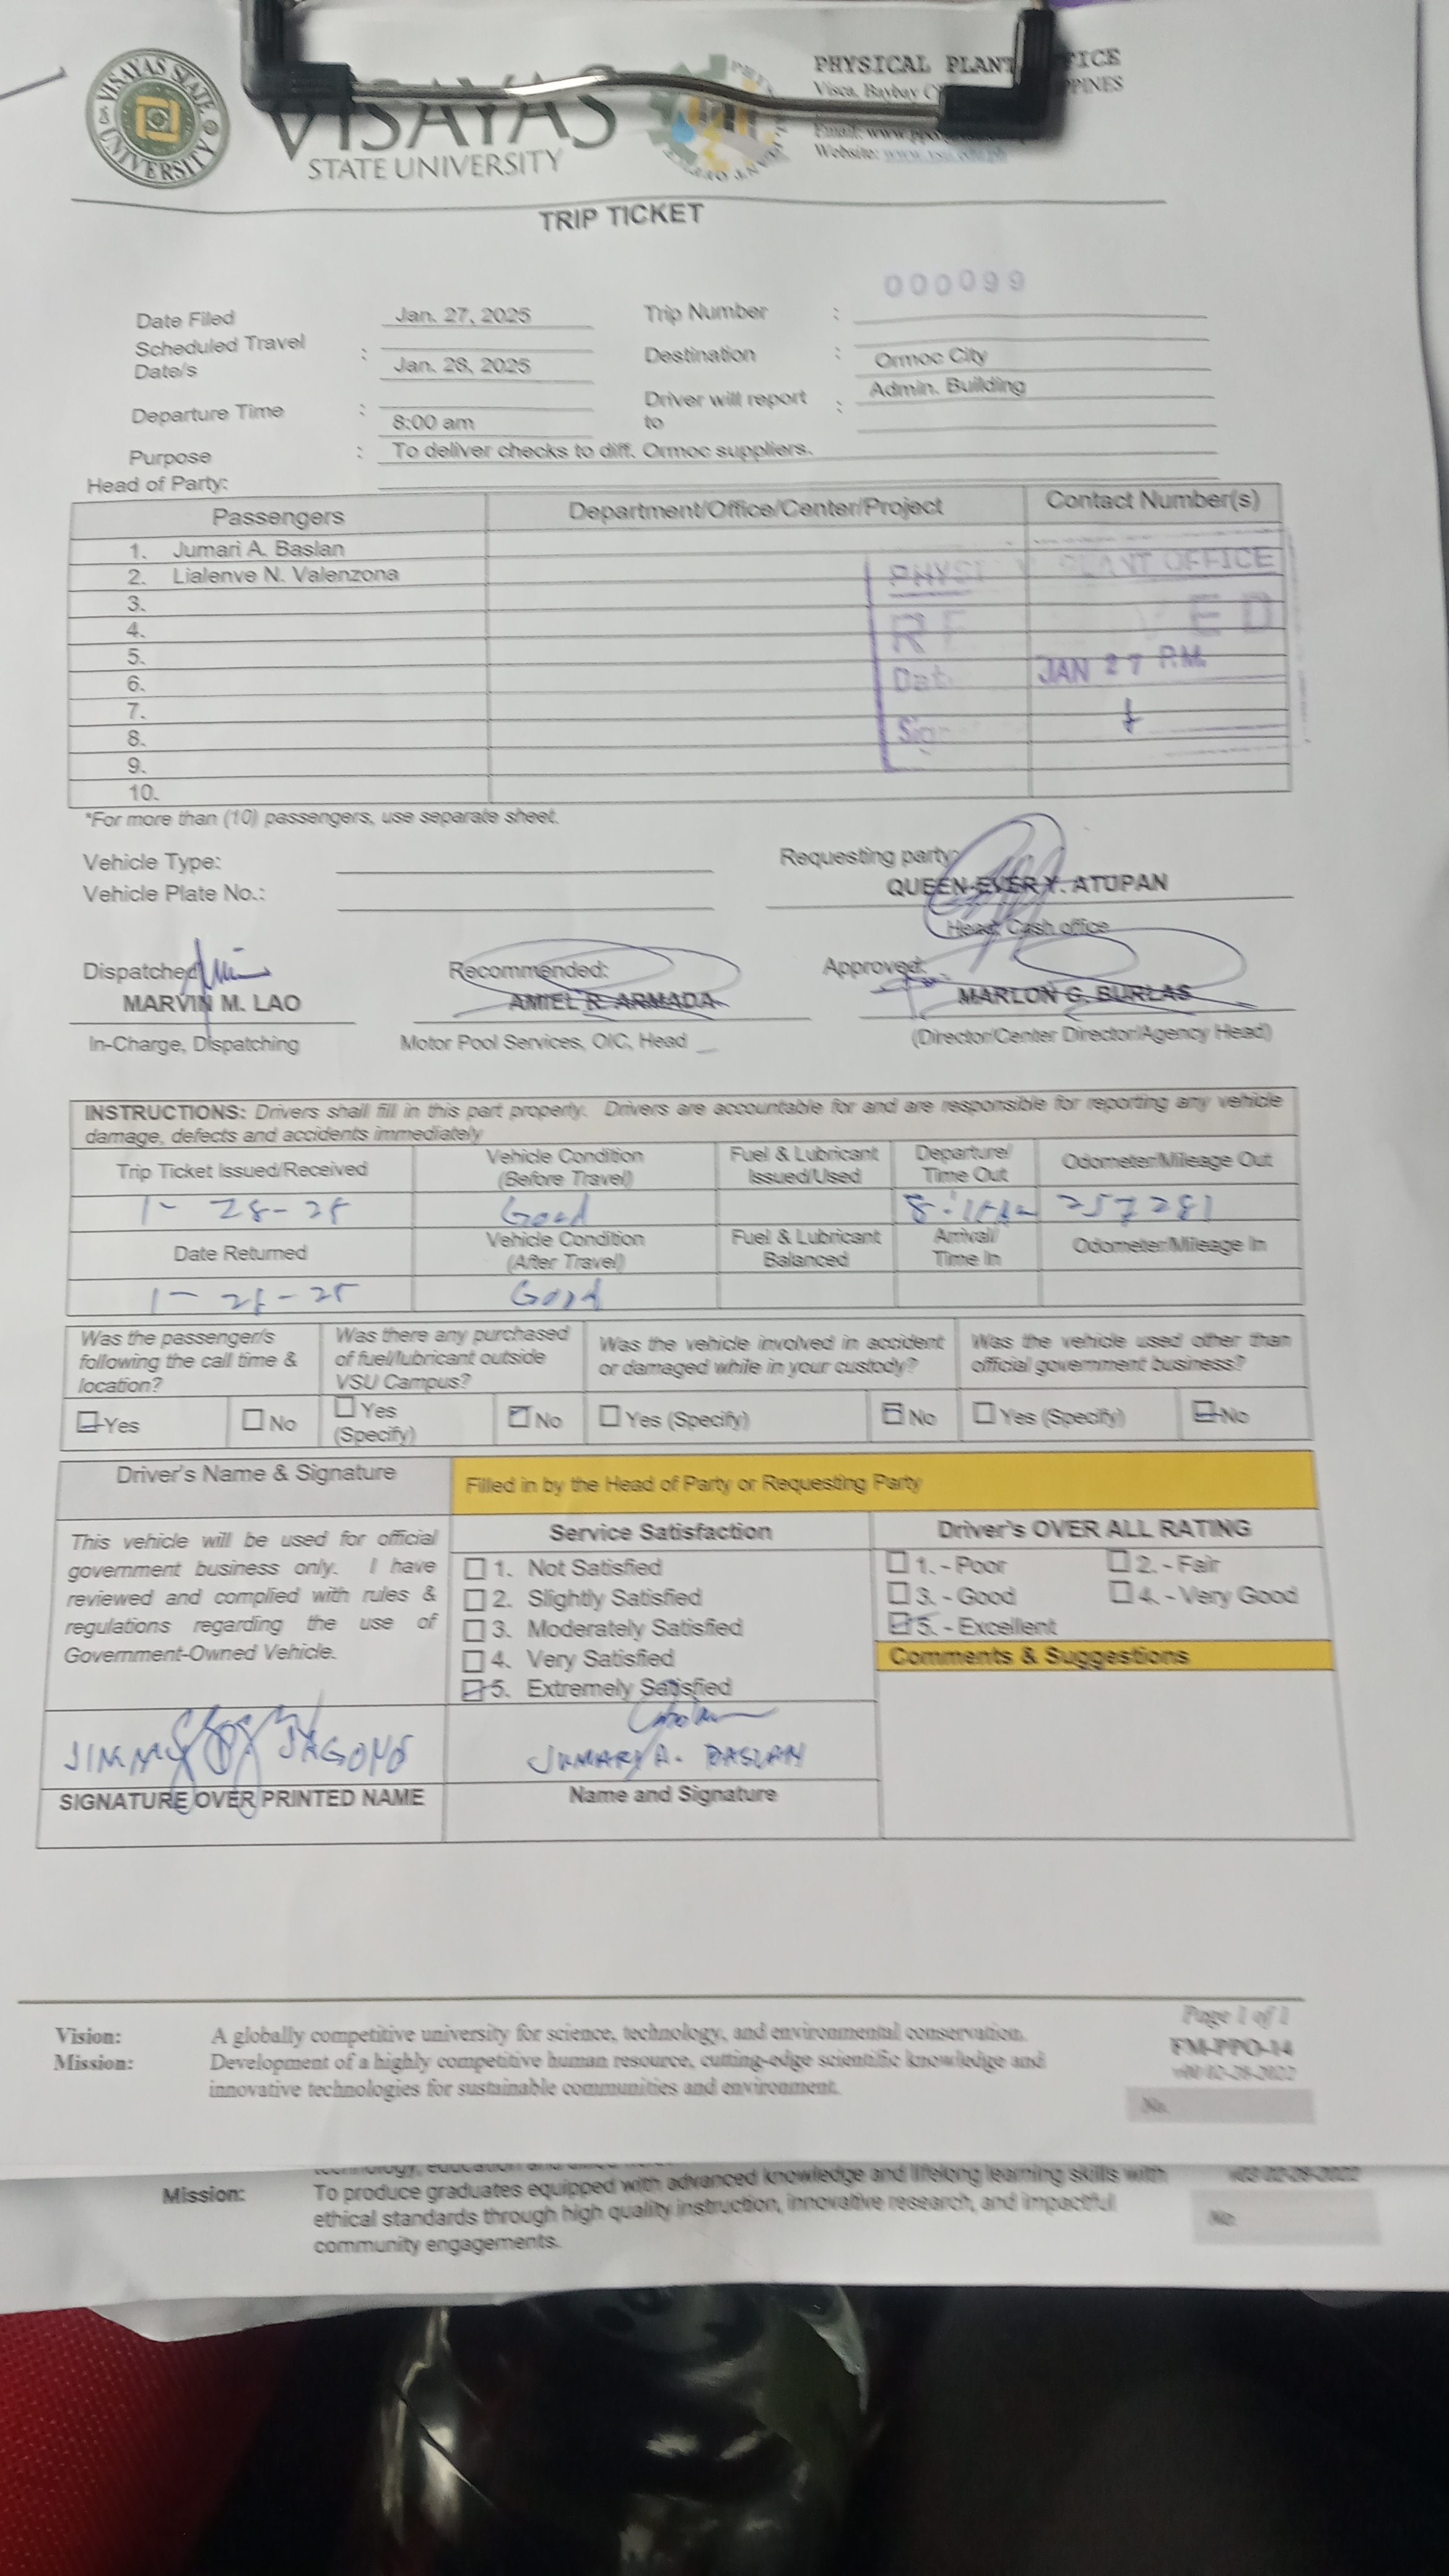 VISAYAS STATE UNIVERSITY
VISAYAS
STATE UNIVERSITY
PHYSICAL PLANT
Visca, Baybay
Website: www.vsu.edu.ph
TRIP TICKET
000099
Date Filed Jan. 27, 2025 Trip Number :
Scheduled Travel Date/s : Jan. 28, 2025 Destination : Ormoc City
Departure Time : 8:00 am Driver will report to : Admin. Building
Purpose : To deliver checks to diff. Ormoc suppliers.
Head of Party:
Passengers Department/Office/Center/Project Contact Number(s)
1. Jumari A. Baslan
2. Lialenve N. Valenzona
3.
4.
5.
6.
7.
8.
9.
10.
PLANT OFFICE
JAN 27 P.M.
*For more than (10) passengers, use separate sheet.
Vehicle Type: Requesting party:
Vehicle Plate No.: QUEEN-EVER Y. ATUPAN
Head, Cash office
Dispatched Recommended: Approved:
MARVIN M. LAO AMIEL R. ARMADA MARLON G. BURLAS
In-Charge, Dispatching Motor Pool Services, OIC, Head (Director/Center Director/Agency Head)
INSTRUCTIONS: Drivers shall fill in this part properly. Drivers are accountable for and are responsible for reporting any vehicle
damage, defects and accidents immediately
Trip Ticket Issued/Received Vehicle Condition (Before Travel) Fuel & Lubricant Issued/Used Departure/ Time Out Odometer/Mileage Out
1- 28-25 Good 257281
Date Returned Vehicle Condition (After Travel) Fuel & Lubricant Balanced Arrival/ Time In Odometer/Mileage In
Good
Was the passenger/s following the call time & location? Was there any purchased of fuel/lubricant outside VSU Campus? Was the vehicle involved in accident or damaged while in your custody? Was the vehicle used other than official government business?
Yes No Yes (Specify) No Yes (Specify) No Yes (Specify) No
Driver's Name & Signature Filled in by the Head of Party or Requesting Party
This vehicle will be used for official
government business only. I have
reviewed and complied with rules &
regulations regarding the use of
Government-Owned Vehicle.
Service Satisfaction
1. Not Satisfied
2. Slightly Satisfied
3. Moderately Satisfied
4. Very Satisfied
5. Extremely Satisfied
Driver's OVER ALL RATING
1. - Poor 2. - Fair
3. - Good 4. - Very Good
5. - Excellent
Comments & Suggestions
JUMARI A. BASLAN
SIGNATURE OVER PRINTED NAME Name and Signature
Page 1 of 1
Vision: A globally competitive university for science, technology, and environmental conservation.
FM-PPO-14
Mission: Development of a highly competitive human resource, cutting-edge scientific knowledge and
innovative technologies for sustainable communities and environment.
No.
Mission: To produce graduates equipped with advanced knowledge and lifelong learning skills with
ethical standards through high quality instruction, innovative research, and impactful
community engagements.
No.